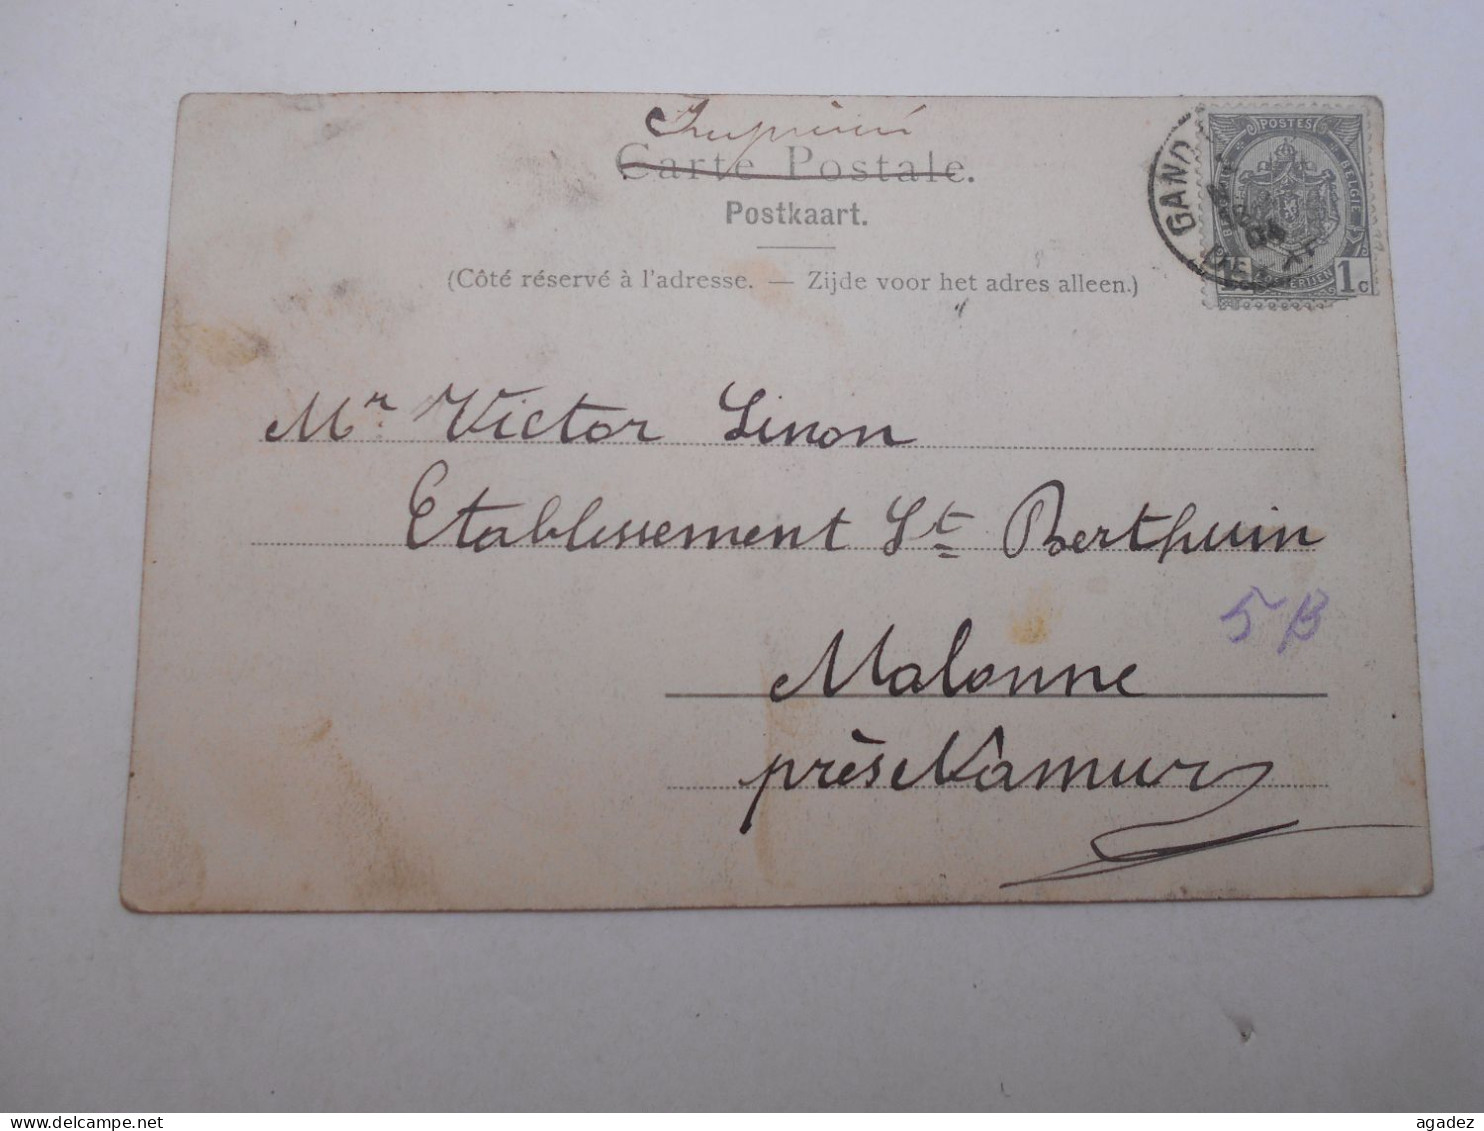 Imprimé
Carte Postale.
Postkaart.
(Côté réservé à l'adresse. — Zijde voor het adres alleen.)
POSTES
BELGIE
GAND
04
1c
Mr Victor Linon
Etablissement St Berthuin
5B
Malonne
près Namur
agadez